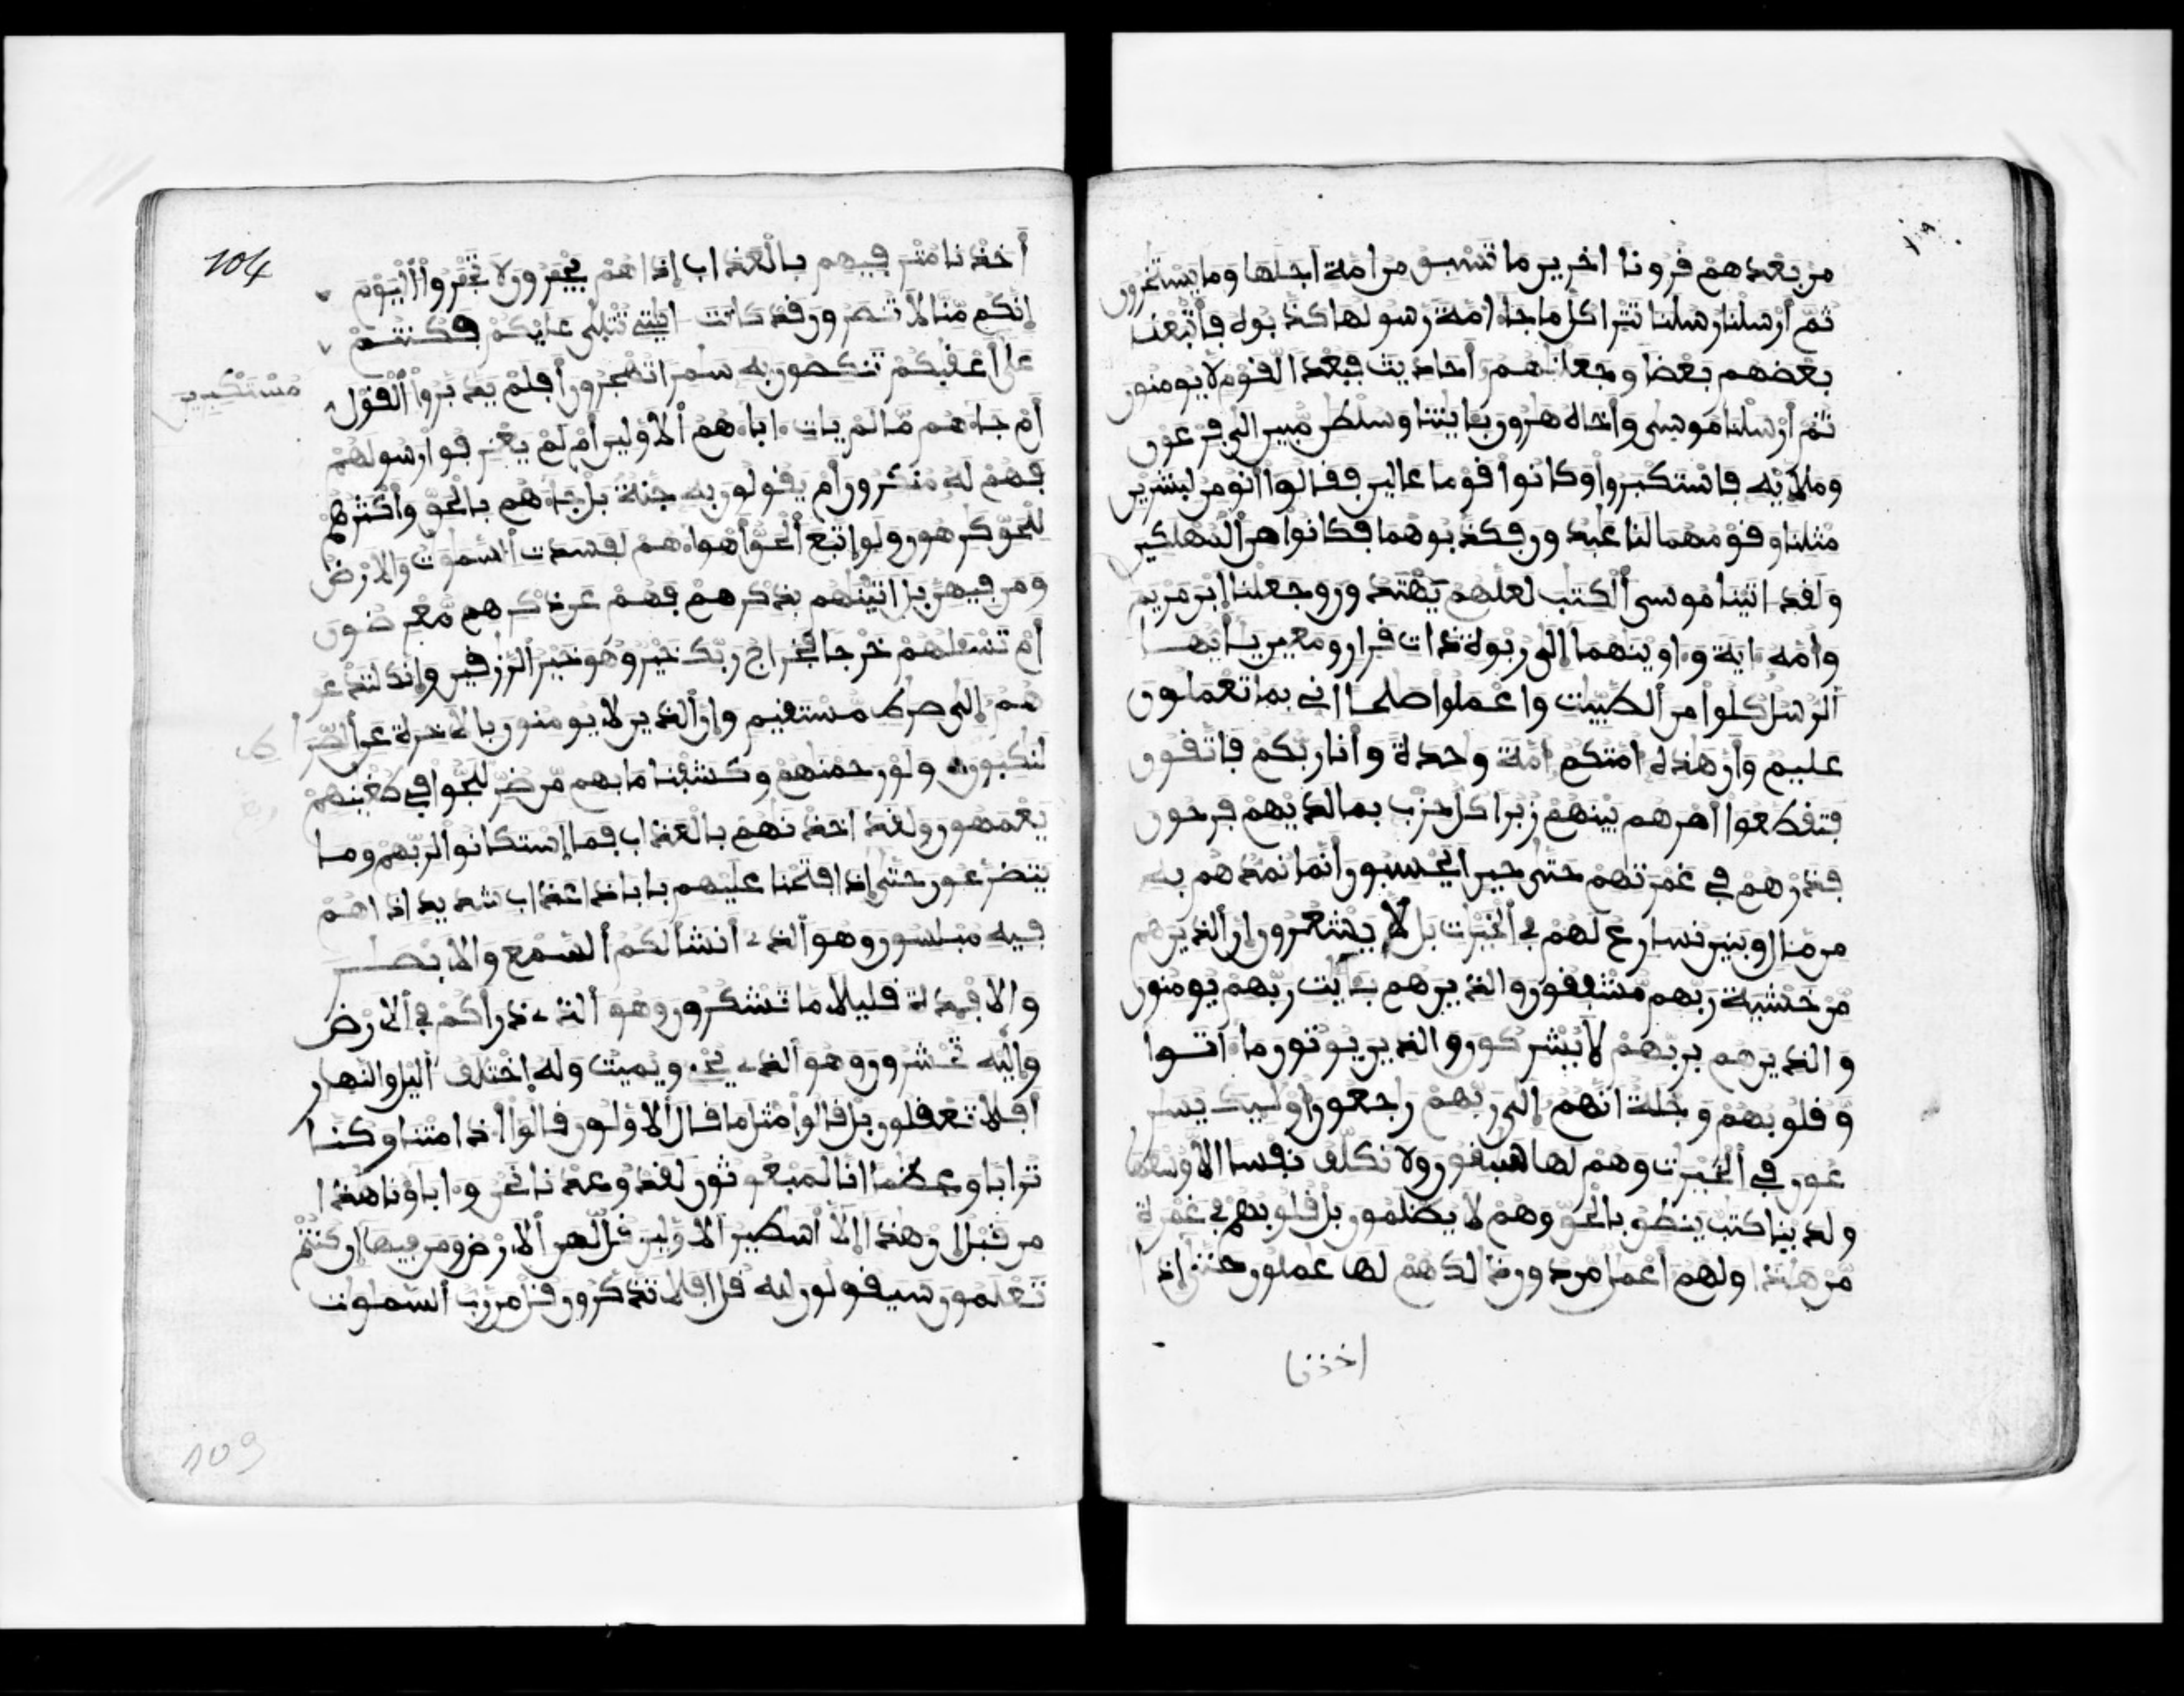 من بعدهم قرونا اخرين ما تسبق من امة اجلها وما يستخرون
ثم أرسلنا رسلنا تترا كل ما جا امة رسولها كذبوه فأتبعنا
بعضهم بعضا وجعلنهم أحاديث فبعدا لقوم لا يومنون
ثم أرسلنا موسى وأخاه هرون بايتنا وسلطن مبين الى فرعون
وملإيه فاستكبروا وكانوا قوما عالين فقالوا انومن لبشرين
مثلنا وقومهما لنا عبدون فكذبوهما فكانوا من المهلكين
ولقد اتينا موسى الكتب لعلهم يهتدون وجعلنا ابن مريم
وأمه اية واوينهما إلى ربوة ذات قرار ومعين يايها
الرسل كلوا من الطيبت واعملوا صلحا اني بما تعملون
عليم وأن هذه امتكم امة وحدة وأنا ربكم فاتقون
فتقطعوا أمرهم بينهم زبرا كل حزب بما لديهم فرحون
فذرهم في غمرتهم حتى حين ايحسبون أنما نمدهم به
من مال وبنين نسارع لهم في الخيرت بل لا يشعرون ان الذين هم
من خشية ربهم مشفقون والذين هم بايت ربهم يومنون
والذين هم بربهم لا يشركون والذين يوتون ما اتوا
وقلوبهم وجلة انهم إلى ربهم رجعون أوليك يسر
عون في الخيرت وهم لها سبقون ولا نكلف نفسا الا وسعها
ولدينا كتب ينطق بالحق وهم لا يظلمون بل قلوبهم في غمرة
من هذا ولهم أعمل من دون ذلك هم لها عملون حتى إذا
اخذنا
104
أخذنا مترفيهم بالعذاب إذا هم يجرون لا تجروا اليوم
إنكم منا لا تنصرون قد كانت ايتي تتلى عليكم فكنتم
على أعقبكم تنكصون به سمرا تهجرون أفلم يدبروا القول
مستكبرين
أم جاهم ما لم يات اباهم الأولين أم لم يعرفوا رسولهم
فهم له منكرون أم يقولون به جنة بل جاهم بالحق وأكثرهم
للحق كرهون ولو اتبع الحق أهواهم لفسدت السموت والارض
ومن فيهن بل اتينهم بذكرهم فهم عن ذكرهم معرضون
أم تسئلهم خرجا فخراج ربك خير وهو خير الرزقين وإنك لتدعو
هم إلى صرط مستقيم وإن الذين لا يومنون بالاخرة عن الصر
ط
لنكبون ولو رحمنهم وكشفنا ما بهم من ضر للجوا في طغينهم
يعمهون ولقد اخذنهم بالعذاب فما استكانوا لربهم وما
يتضرعون حتى إذا فتحنا عليهم بابا ذا عذاب شديد اذا هم
فيه مبلسون وهو الذي أنشأ لكم السمع والابصر
والافدة قليلا ما تشكرون وهو الذي ذرأكم في الارض
وإليه تحشرون وهو الذي يحي ويميت وله اختلف اليل والنهار
أفلا تعقلون بل قالوا مثل ما قال الأولون قالوا اذا متنا وكنا
ترابا وعظما انا لمبعوثون لقد وعدنا نحن واباونا هذا
من قبل إن هذا إلا أسطير الأولين قل لمن الارض ومن فيها إن كنتم
تعلمون سيقولون لله قل افلا تذكرون قل من رب السموت
109